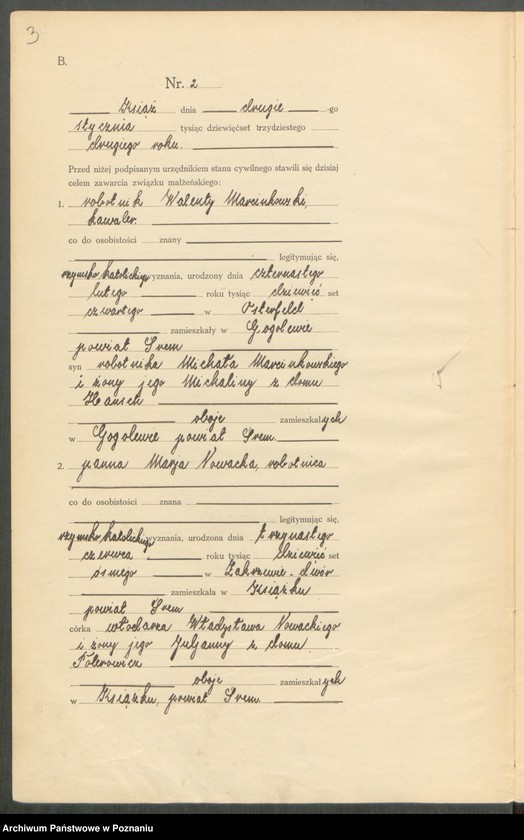 3
B.
Nr. 2
Książ dnia drugie -go
stycznia tysiąc dziewięćset trzydziestego
drugiego roku.
Przed niżej podpisanym urzędnikiem stanu cywilnego stawili się dzisiaj
celem zawarcia związku małżeńskiego:
1. robotnik Walenty Marcinkowski,
kawaler.
co do osobistości znany
legitymując się,
rzymsko katolickiego wyznania, urodzony dnia czternastego
lutego roku tysiąc dziewięć set
czwartego w Osterfeld
zamieszkały w Gogolewie
powiat Śrem
syn robotnika Michała Marcinkowskiego
i żony jego Michaliny z domu
Hansch
oboje zamieszkałych
w Gogolewie powiat Śrem.
2. panna Marja Nowacka, robotnica
co do osobistości znana
legitymując się,
rzymsko katolickiego wyznania, urodzona dnia trzynastego
czerwca roku tysiąc dziewięć set
ósmego w Zakrzewie - dwór
zamieszkała w Książku
powiat Śrem
córka włodarza Władysława Nowackiego
i żony jego Juljanny z domu
oboje zamieszkałych
w Książku, powiat Śrem.
Archiwum Państwowe w Poznaniu